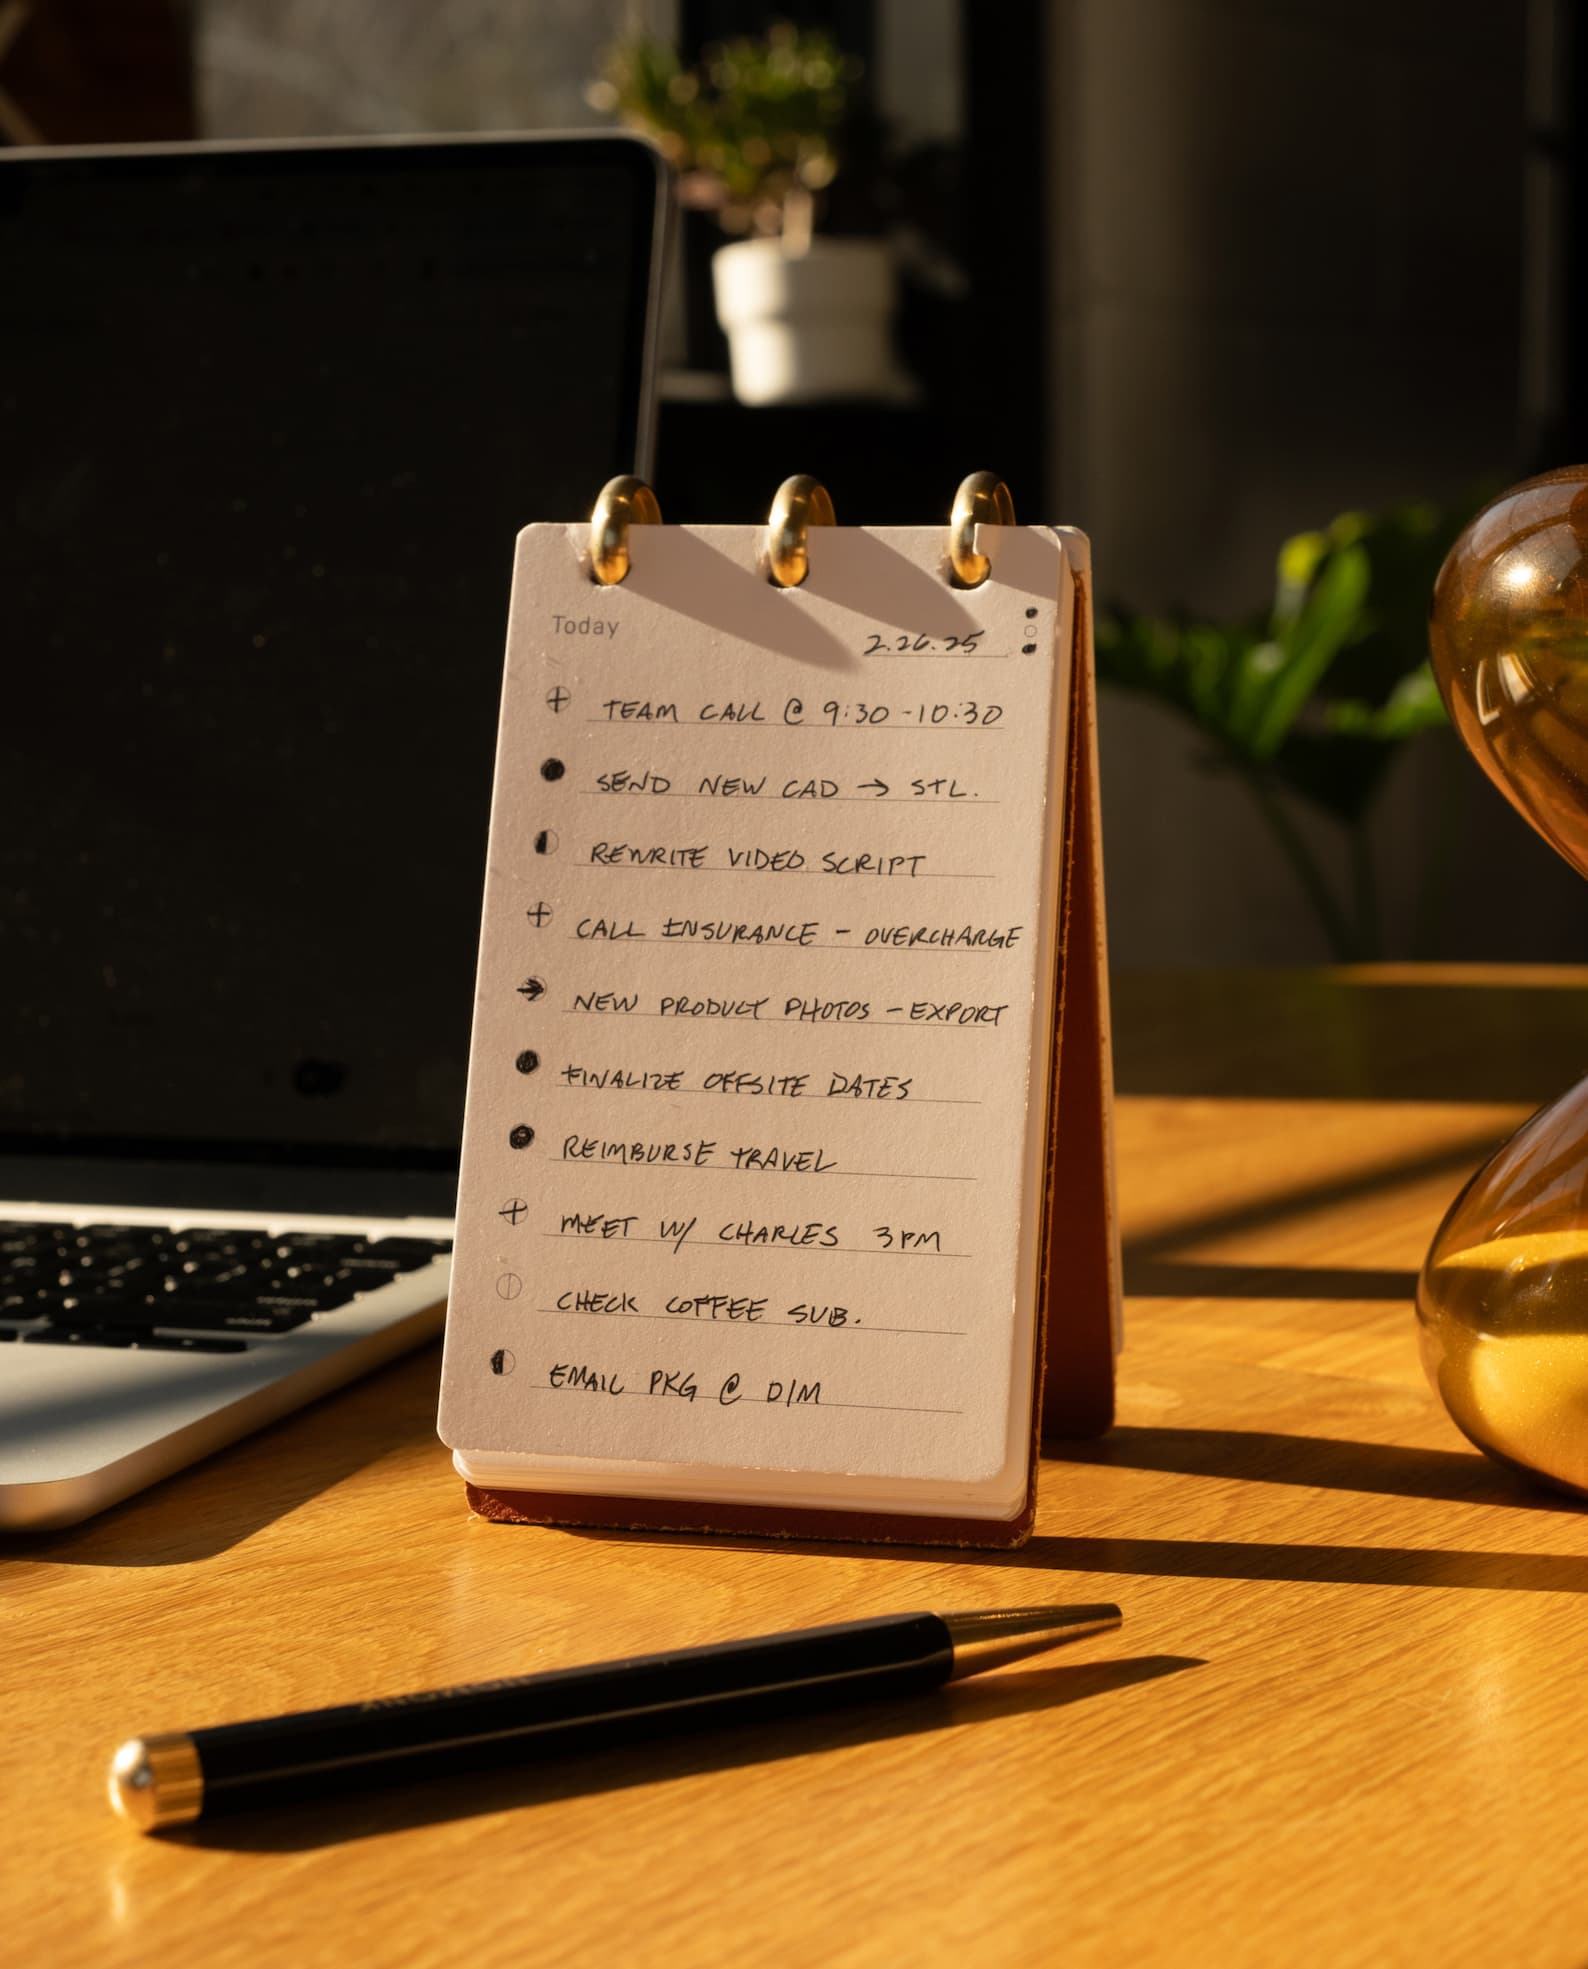 Today
2.26.25
TEAM CALL @ 9:30 - 10:30
SEND NEW CAD → STL.
REWRITE VIDEO SCRIPT
CALL INSURANCE - OVERCHARGE
NEW PRODUCT PHOTOS - EXPORT
FINALIZE OFFSITE DATES
REIMBURSE TRAVEL
MEET W/ CHARLES 3PM
CHECK COFFEE SUB.
EMAIL PKG @ D/M